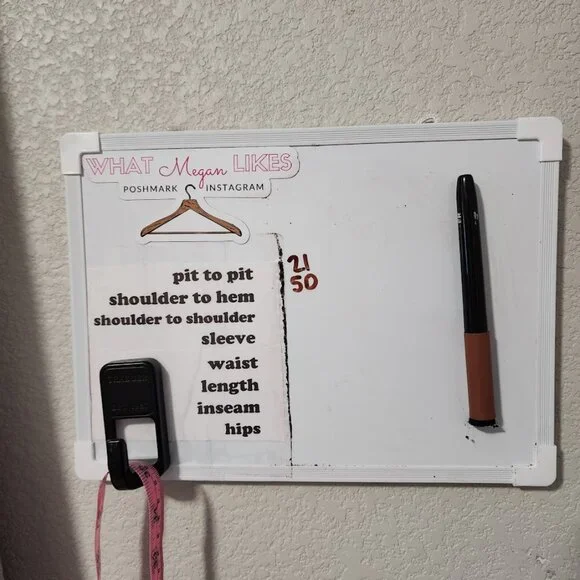 WHAT Megan LIKES
POSHMARK INSTAGRAM
pit to pit 21
shoulder to hem 50
shoulder to shoulder
sleeve
waist
length
inseam
hips